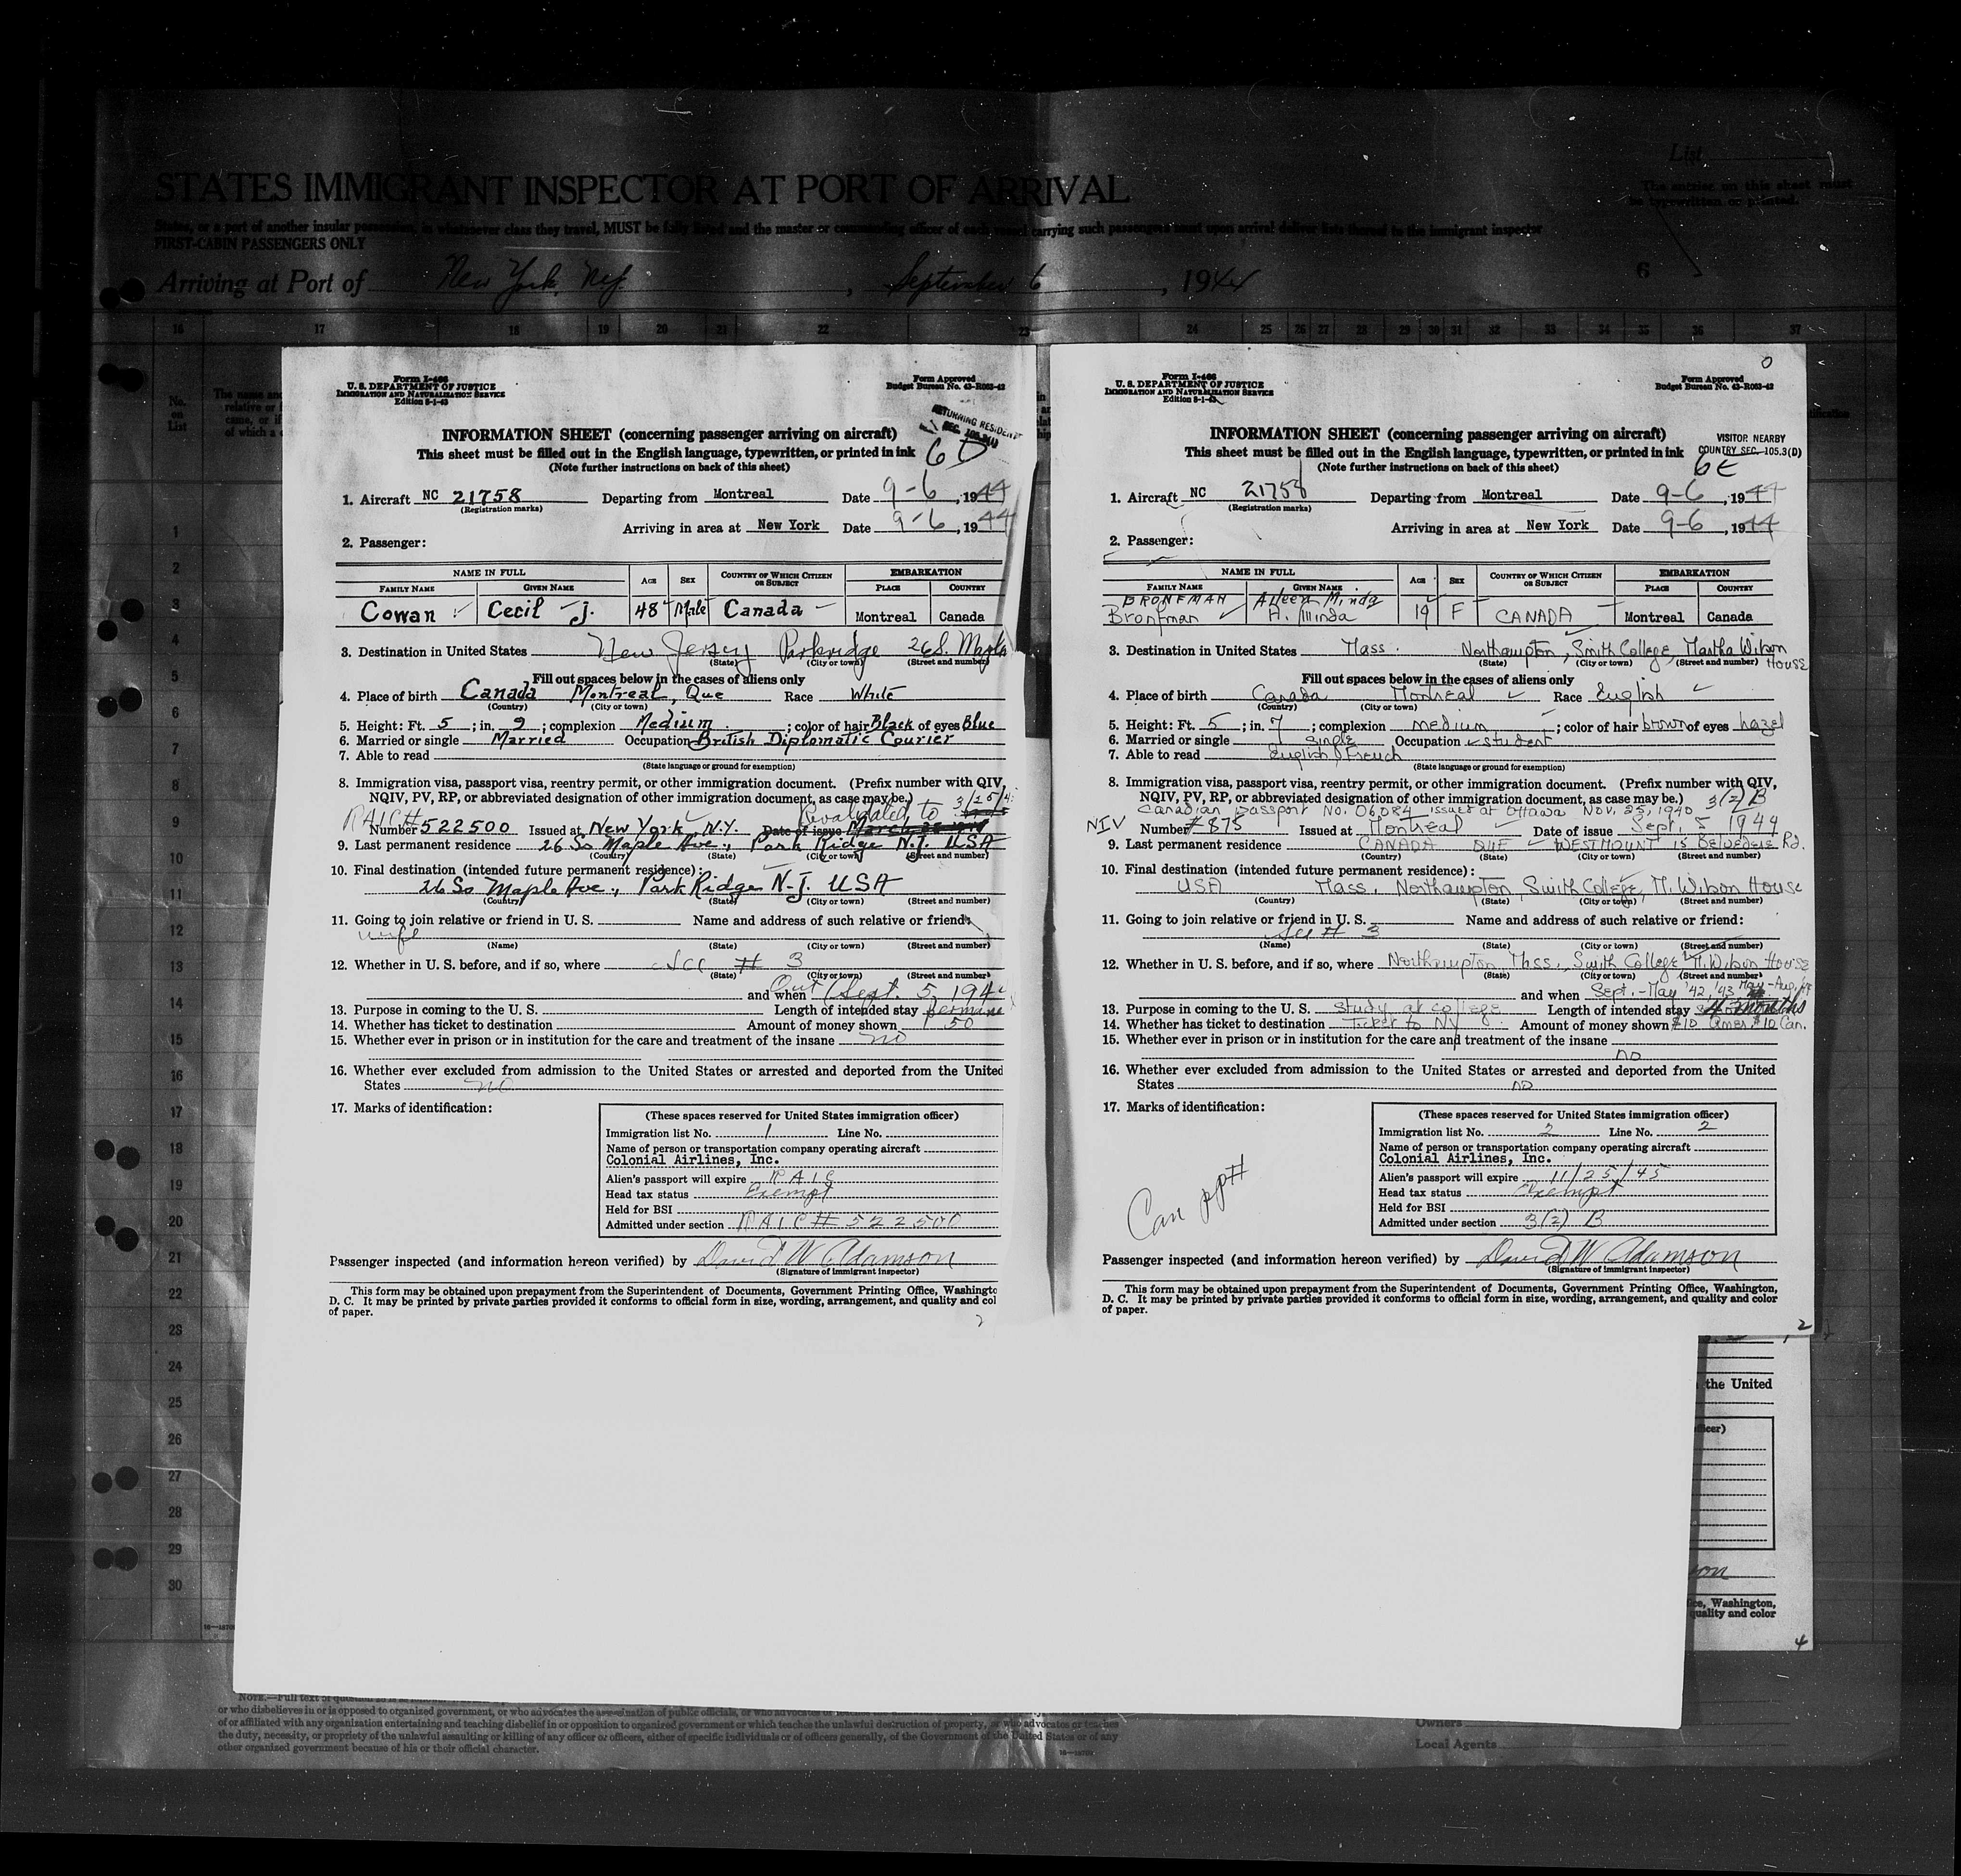 List
STATES IMMIGRANT INSPECTOR AT PORT OF ARRIVAL
The entries on this sheet must
be typewritten or printed.
States, or a part of another insular possession, in whatsoever class they travel, MUST be fully listed and the master or commanding officer of each vessel carrying such passengers must upon arrival deliver lists thereof to the immigrant inspector
FIRST-CABIN PASSENGERS ONLY
Arriving at Port of New York, N.Y. , September 6 , 1944
6
16 17 18 19 20 21 22 23 24 25 26 27 28 29 30 31 32 33 34 35 36 37
No. on List
1
2
3
4
5
6
7
8
9
10
11
12
13
14
15
16
17
18
19
20
21
22
23
24
25
26
27
28
29
30
Form I-466
U. S. DEPARTMENT OF JUSTICE
IMMIGRATION AND NATURALIZATION SERVICE
Edition 8-1-43
Form Approved
Budget Bureau No. 43-R063-42
RETURNING RESIDENT
SEC.
INFORMATION SHEET (concerning passenger arriving on aircraft)
This sheet must be filled out in the English language, typewritten, or printed in ink 6D
(Note further instructions on back of this sheet)
1. Aircraft NC 21758 Departing from Montreal Date 9-6, 1944
(Registration marks)
Arriving in area at New York Date 9-6, 1944
2. Passenger:
NAME IN FULL AGE SEX COUNTRY OF WHICH CITIZEN OR SUBJECT EMBARKATION
FAMILY NAME GIVEN NAME PLACE COUNTRY
Cowan Cecil J. 48 Male Canada Montreal Canada
3. Destination in United States New Jersey Parkridge 26 S. Maple
(State) (City or town) (Street and number)
Fill out spaces below in the cases of aliens only
4. Place of birth Canada Montreal, Que Race White
(Country) (City or town)
5. Height: Ft. 5 ; in. 9 ; complexion Medium ; color of hair Black of eyes Blue
6. Married or single Married Occupation British Diplomatic Courier
7. Able to read
(State language or ground for exemption)
8. Immigration visa, passport visa, reentry permit, or other immigration document. (Prefix number with QIV,
NQIV, PV, RP, or abbreviated designation of other immigration document, as case may be.)
Revalidated to
RAIC# Number 522500 Issued at New York, N.Y. Date of issue March
9. Last permanent residence 26 So Maple Ave., Park Ridge N.J. USA
(Country) (State) (City or town) (Street and number)
10. Final destination (intended future permanent residence):
26 So Maple Ave., Park Ridge N.J. USA
(Country) (State) (City or town) (Street and number)
11. Going to join relative or friend in U. S. Name and address of such relative or friend:
wife
(Name) (State) (City or town) (Street and number)
12. Whether in U. S. before, and if so, where See # 3
(State) (City or town) (Street and number)
and when Out (Sept. 5, 194
13. Purpose in coming to the U. S. Length of intended stay
14. Whether has ticket to destination Amount of money shown 50
15. Whether ever in prison or in institution for the care and treatment of the insane no
16. Whether ever excluded from admission to the United States or arrested and deported from the United
States no
17. Marks of identification:
(These spaces reserved for United States immigration officer)
Immigration list No. 1 Line No.
Name of person or transportation company operating aircraft
Colonial Airlines, Inc.
Alien's passport will expire RAIC
Head tax status Exempt
Held for BSI
Admitted under section RAIC # 522500
Passenger inspected (and information hereon verified) by David W Adamson
(Signature of immigrant inspector)
This form may be obtained upon prepayment from the Superintendent of Documents, Government Printing Office, Washingto
D. C. It may be printed by private parties provided it conforms to official form in size, wording, arrangement, and quality and col
of paper.
0
Form I-466
U. S. DEPARTMENT OF JUSTICE
IMMIGRATION AND NATURALIZATION SERVICE
Edition 8-1-43
Form Approved
Budget Bureau No. 43-R063-42
INFORMATION SHEET (concerning passenger arriving on aircraft)
VISITOR NEARBY
COUNTRY SEC. 105.3(D)
This sheet must be filled out in the English language, typewritten, or printed in ink 6E
(Note further instructions on back of this sheet)
1. Aircraft NC 21758 Departing from Montreal Date 9-6, 1944
(Registration marks)
Arriving in area at New York Date 9-6, 1944
2. Passenger:
NAME IN FULL AGE SEX COUNTRY OF WHICH CITIZEN OR SUBJECT EMBARKATION
FAMILY NAME GIVEN NAME PLACE COUNTRY
BRONFMAN Aileen Minda
Bronfman A. Minda 19 F CANADA Montreal Canada
3. Destination in United States Mass. Northampton, Smith College, Martha Wilson House
(State) (City or town) (Street and number)
Fill out spaces below in the cases of aliens only
4. Place of birth Canada Montreal Race English
(Country) (City or town)
5. Height: Ft. 5 ; in. 7 ; complexion medium ; color of hair brown of eyes hazel
6. Married or single single Occupation student
7. Able to read English, French
(State language or ground for exemption)
8. Immigration visa, passport visa, reentry permit, or other immigration document. (Prefix number with QIV,
NQIV, PV, RP, or abbreviated designation of other immigration document, as case may be.) 3(2) B
Canadian Passport No. 06084 issued at Ottawa Nov. 25, 1940
NIV Number # 875 Issued at Montreal Date of issue Sept. 5 1944
9. Last permanent residence CANADA QUE WESTMOUNT 15 BELVEDERE Rd.
(Country) (State) (City or town) (Street and number)
10. Final destination (intended future permanent residence):
USA Mass. Northampton, Smith College, M. Wilson House
(Country) (State) (City or town) (Street and number)
11. Going to join relative or friend in U. S. Name and address of such relative or friend:
See # 3
(Name) (State) (City or town) (Street and number)
12. Whether in U. S. before, and if so, where Northampton Mass., Smith College M. Wilson House
(State) (City or town) (Street and number)
and when Sept.-May '42, '43 May-Aug.
13. Purpose in coming to the U. S. study at college Length of intended stay months
14. Whether has ticket to destination Ticket to NY Amount of money shown $10 Amer. $10 Can.
15. Whether ever in prison or in institution for the care and treatment of the insane
no
16. Whether ever excluded from admission to the United States or arrested and deported from the United
States no
17. Marks of identification:
Can pp#
(These spaces reserved for United States immigration officer)
Immigration list No. 2 Line No. 2
Name of person or transportation company operating aircraft
Colonial Airlines, Inc.
Alien's passport will expire 11/25/45
Head tax status Exempt
Held for BSI
Admitted under section 3(2) B
Passenger inspected (and information hereon verified) by David W Adamson
(Signature of immigrant inspector)
This form may be obtained upon prepayment from the Superintendent of Documents, Government Printing Office, Washington,
D. C. It may be printed by private parties provided it conforms to official form in size, wording, arrangement, and quality and color
of paper.
2
the United
ficer)
on
ce, Washington,
quality and color
4
NOTE.—Full text of
or who disbelieves in or is opposed to organized government, or who advocates the assassination of public officials, or who advocates
of or affiliated with any organization entertaining and teaching disbelief in or opposition to organized government or which teaches the unlawful destruction of property, or who advocates or teaches
the duty, necessity, or propriety of the unlawful assaulting or killing of any officer or officers, either of specific individuals or of officers generally, of the Government of the United States or of any
other organized government because of his or their official character.
Owners
Local Agents